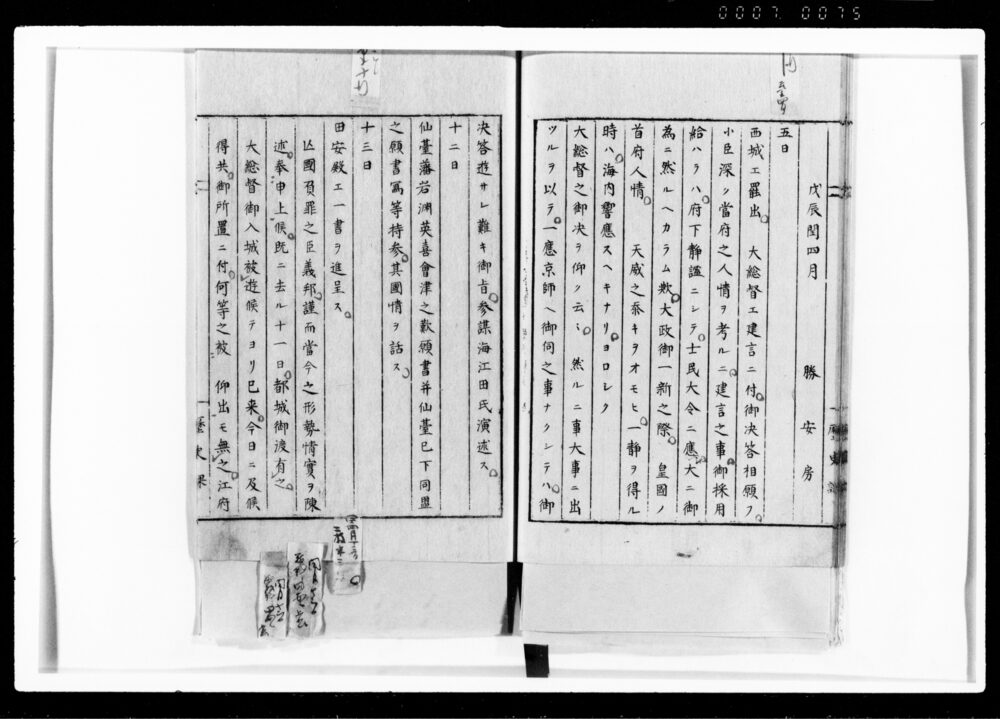 0007 0075
戊辰閏四月　勝安房
五日
西城エ罷出　大総督エ建言ニ付御決答相願フ
小臣深ク當府之人情ヲ考ルニ建言之事御採用
給ハラハ府下静謐ニシテ士民大令ニ應大ニ御
為ニ然ルヘカラム歟大政御一新之際　皇國ノ
首府人情　天威之忝キヲオモヒ一静ヲ得ル
時ハ海内響應スヘキナリヨロシク
大総督之御決ヲ仰ク云々　然ルニ事大事ニ出
ツルヲ以テ一應京師ヘ御伺之事ナクンテハ御
決答遊サレ難キ御旨参謀海江田氏演述ス
十二日
仙臺藩岩渕英喜會津之歎願書并仙臺已下同盟
之願書冩等持参其國情ヲ話ス
十三日
田安殿エ一書ヲ進呈ス
亾國負罪之臣義邦謹而當今之形勢情實ヲ陳
述奉申上候既ニ去ル十一日都城御渡有之
大総督御入城被遊候テヨリ已来今日ニ及候
得共御所置ニ付何等之被　仰出モ無之江府
歴史課